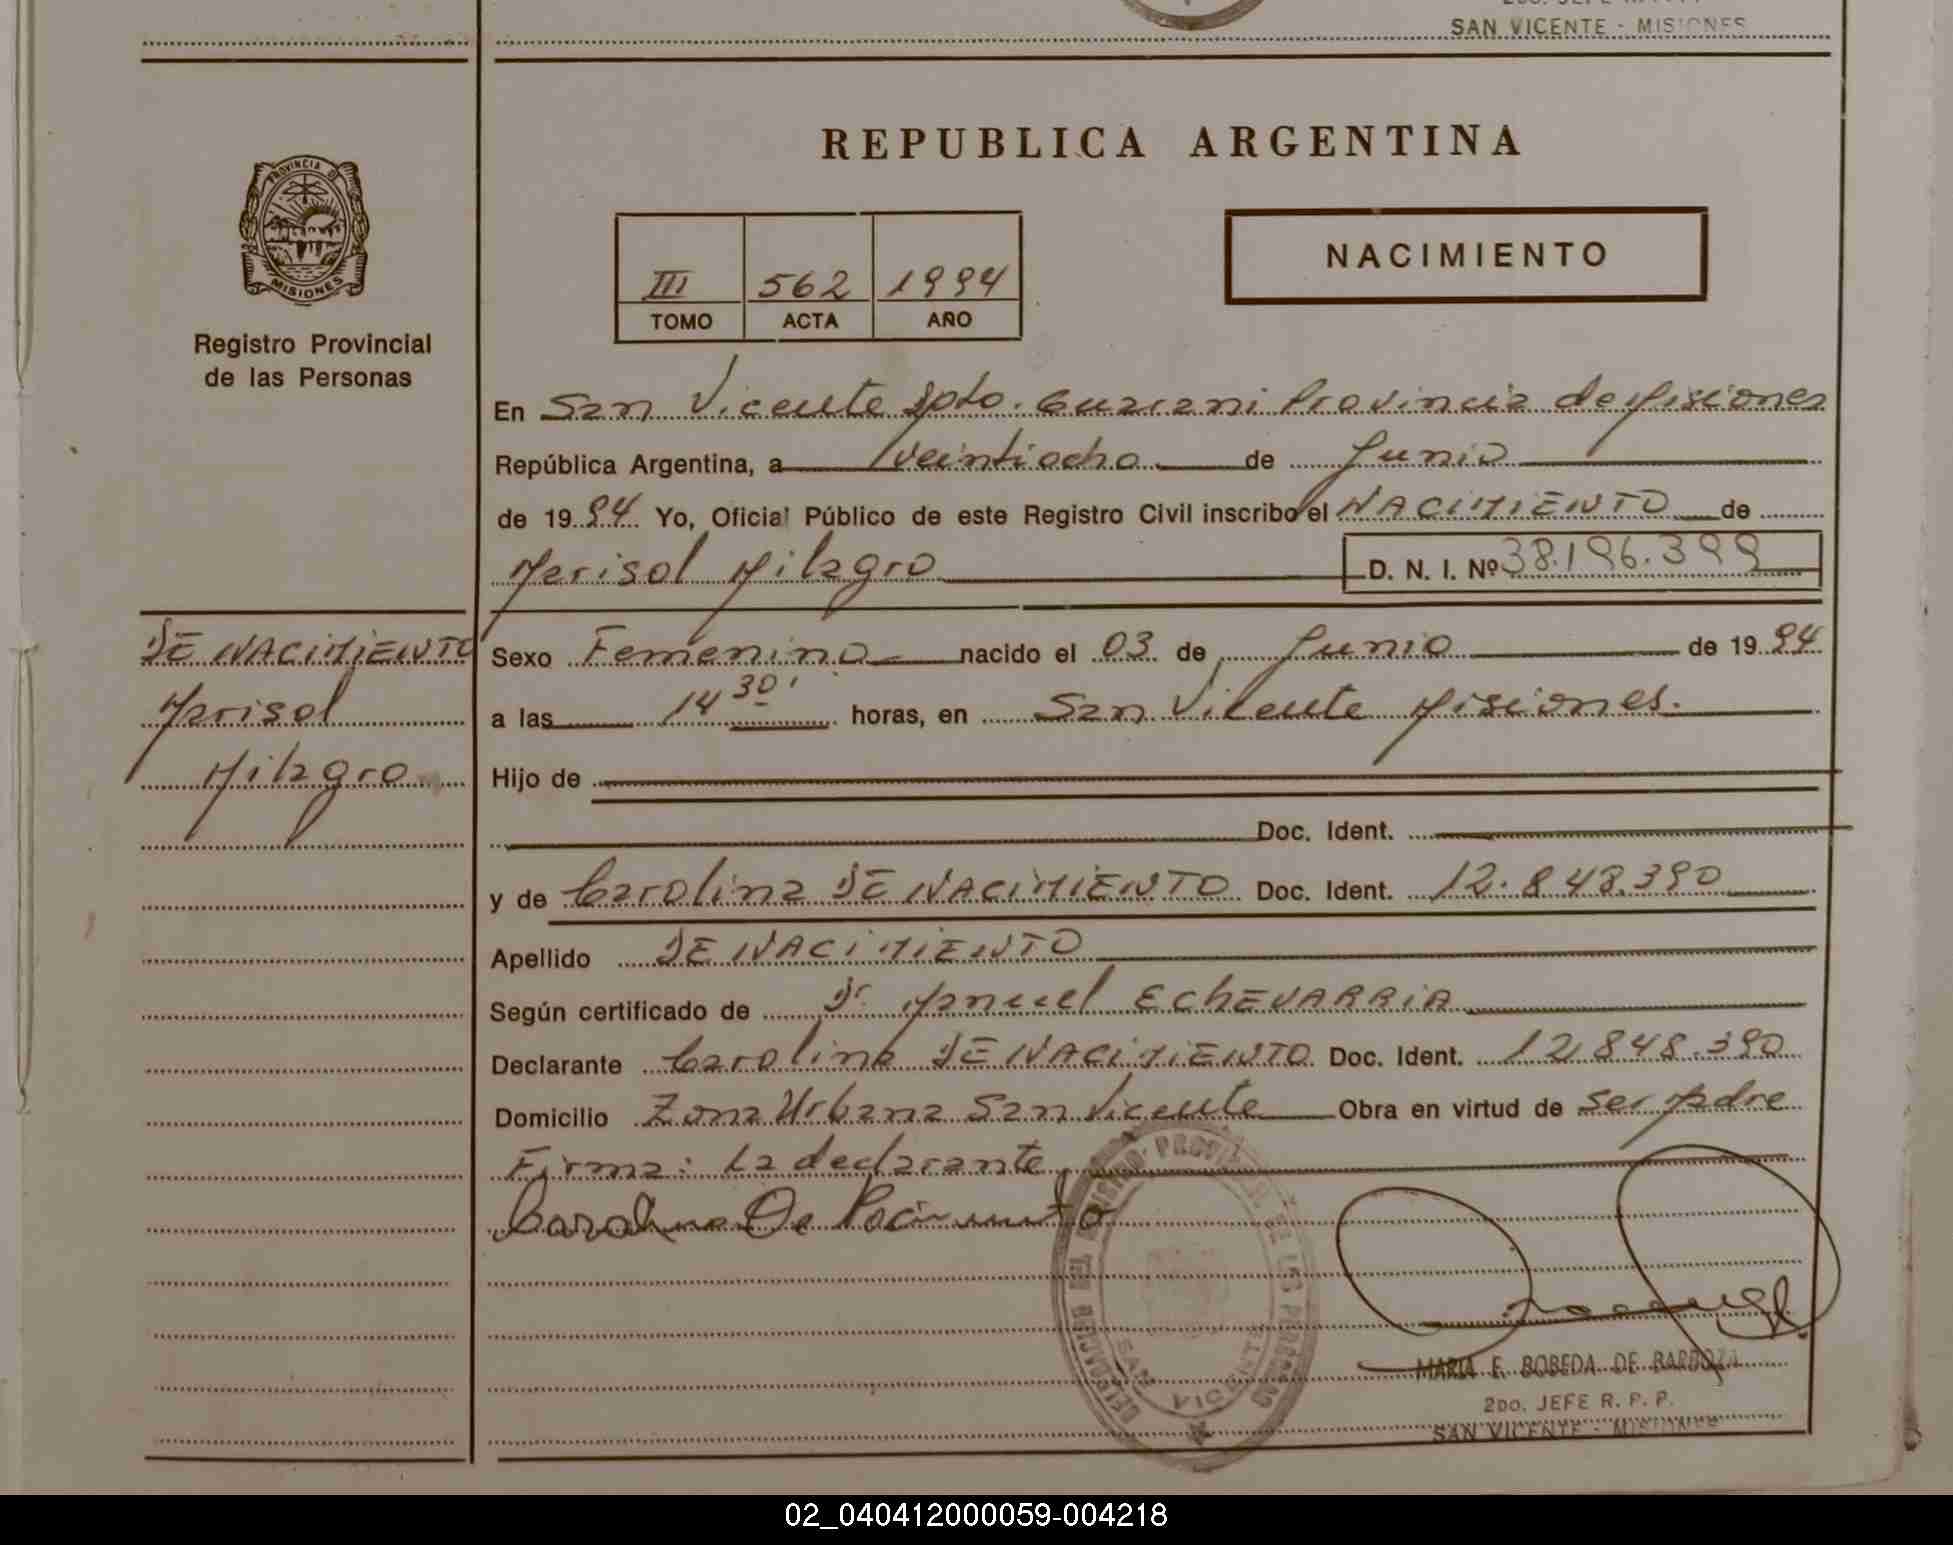 SAN VICENTE - MISIONES
REPUBLICA ARGENTINA
PROVINCIA DE
MISIONES
Registro Provincial
de las Personas
NACIMIENTO
III 562 1994
TOMO ACTA AÑO
En San Vicente Dpto. Guarani Provincia de Misiones
República Argentina, a veintiocho de Junio
de 1994 Yo, Oficial Público de este Registro Civil inscribo el NACIMIENTO de
Marisol Milagro D. N. I. Nº 38.196.399
DE NACIMIENTO
Marisol
Milagro
Sexo Femenino nacido el 03 de Junio de 1994
a las 14 30' horas, en San Vicente Misiones.
Hijo de
Doc. Ident.
y de Carolina DE NACIMIENTO Doc. Ident. 12.848.390
Apellido DE NACIMIENTO
Según certificado de Dr. Manuel EChEVARRiA
Declarante Carolina DE NACIMIENTO Doc. Ident. 12.848.390
Domicilio Zona Urbana San Vicente Obra en virtud de ser Madre
Firma: La declarante
Carolina De Nacimiento
DELEGACION DEL REGISTRO PROVINCIAL DE LAS PERSONAS
SAN VICENTE
MARIA E. BOBEDA DE BARBOZA
2DO. JEFE R. P. P.
SAN VICENTE - MISIONES
02_040412000059-004218